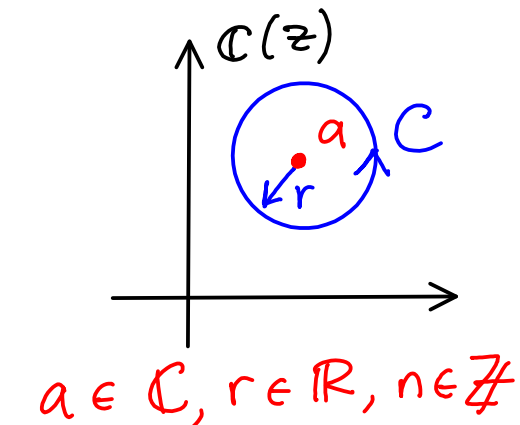 ℂ(z)
a
C
r
a ∈ ℂ, r ∈ ℝ, n ∈ ℤ